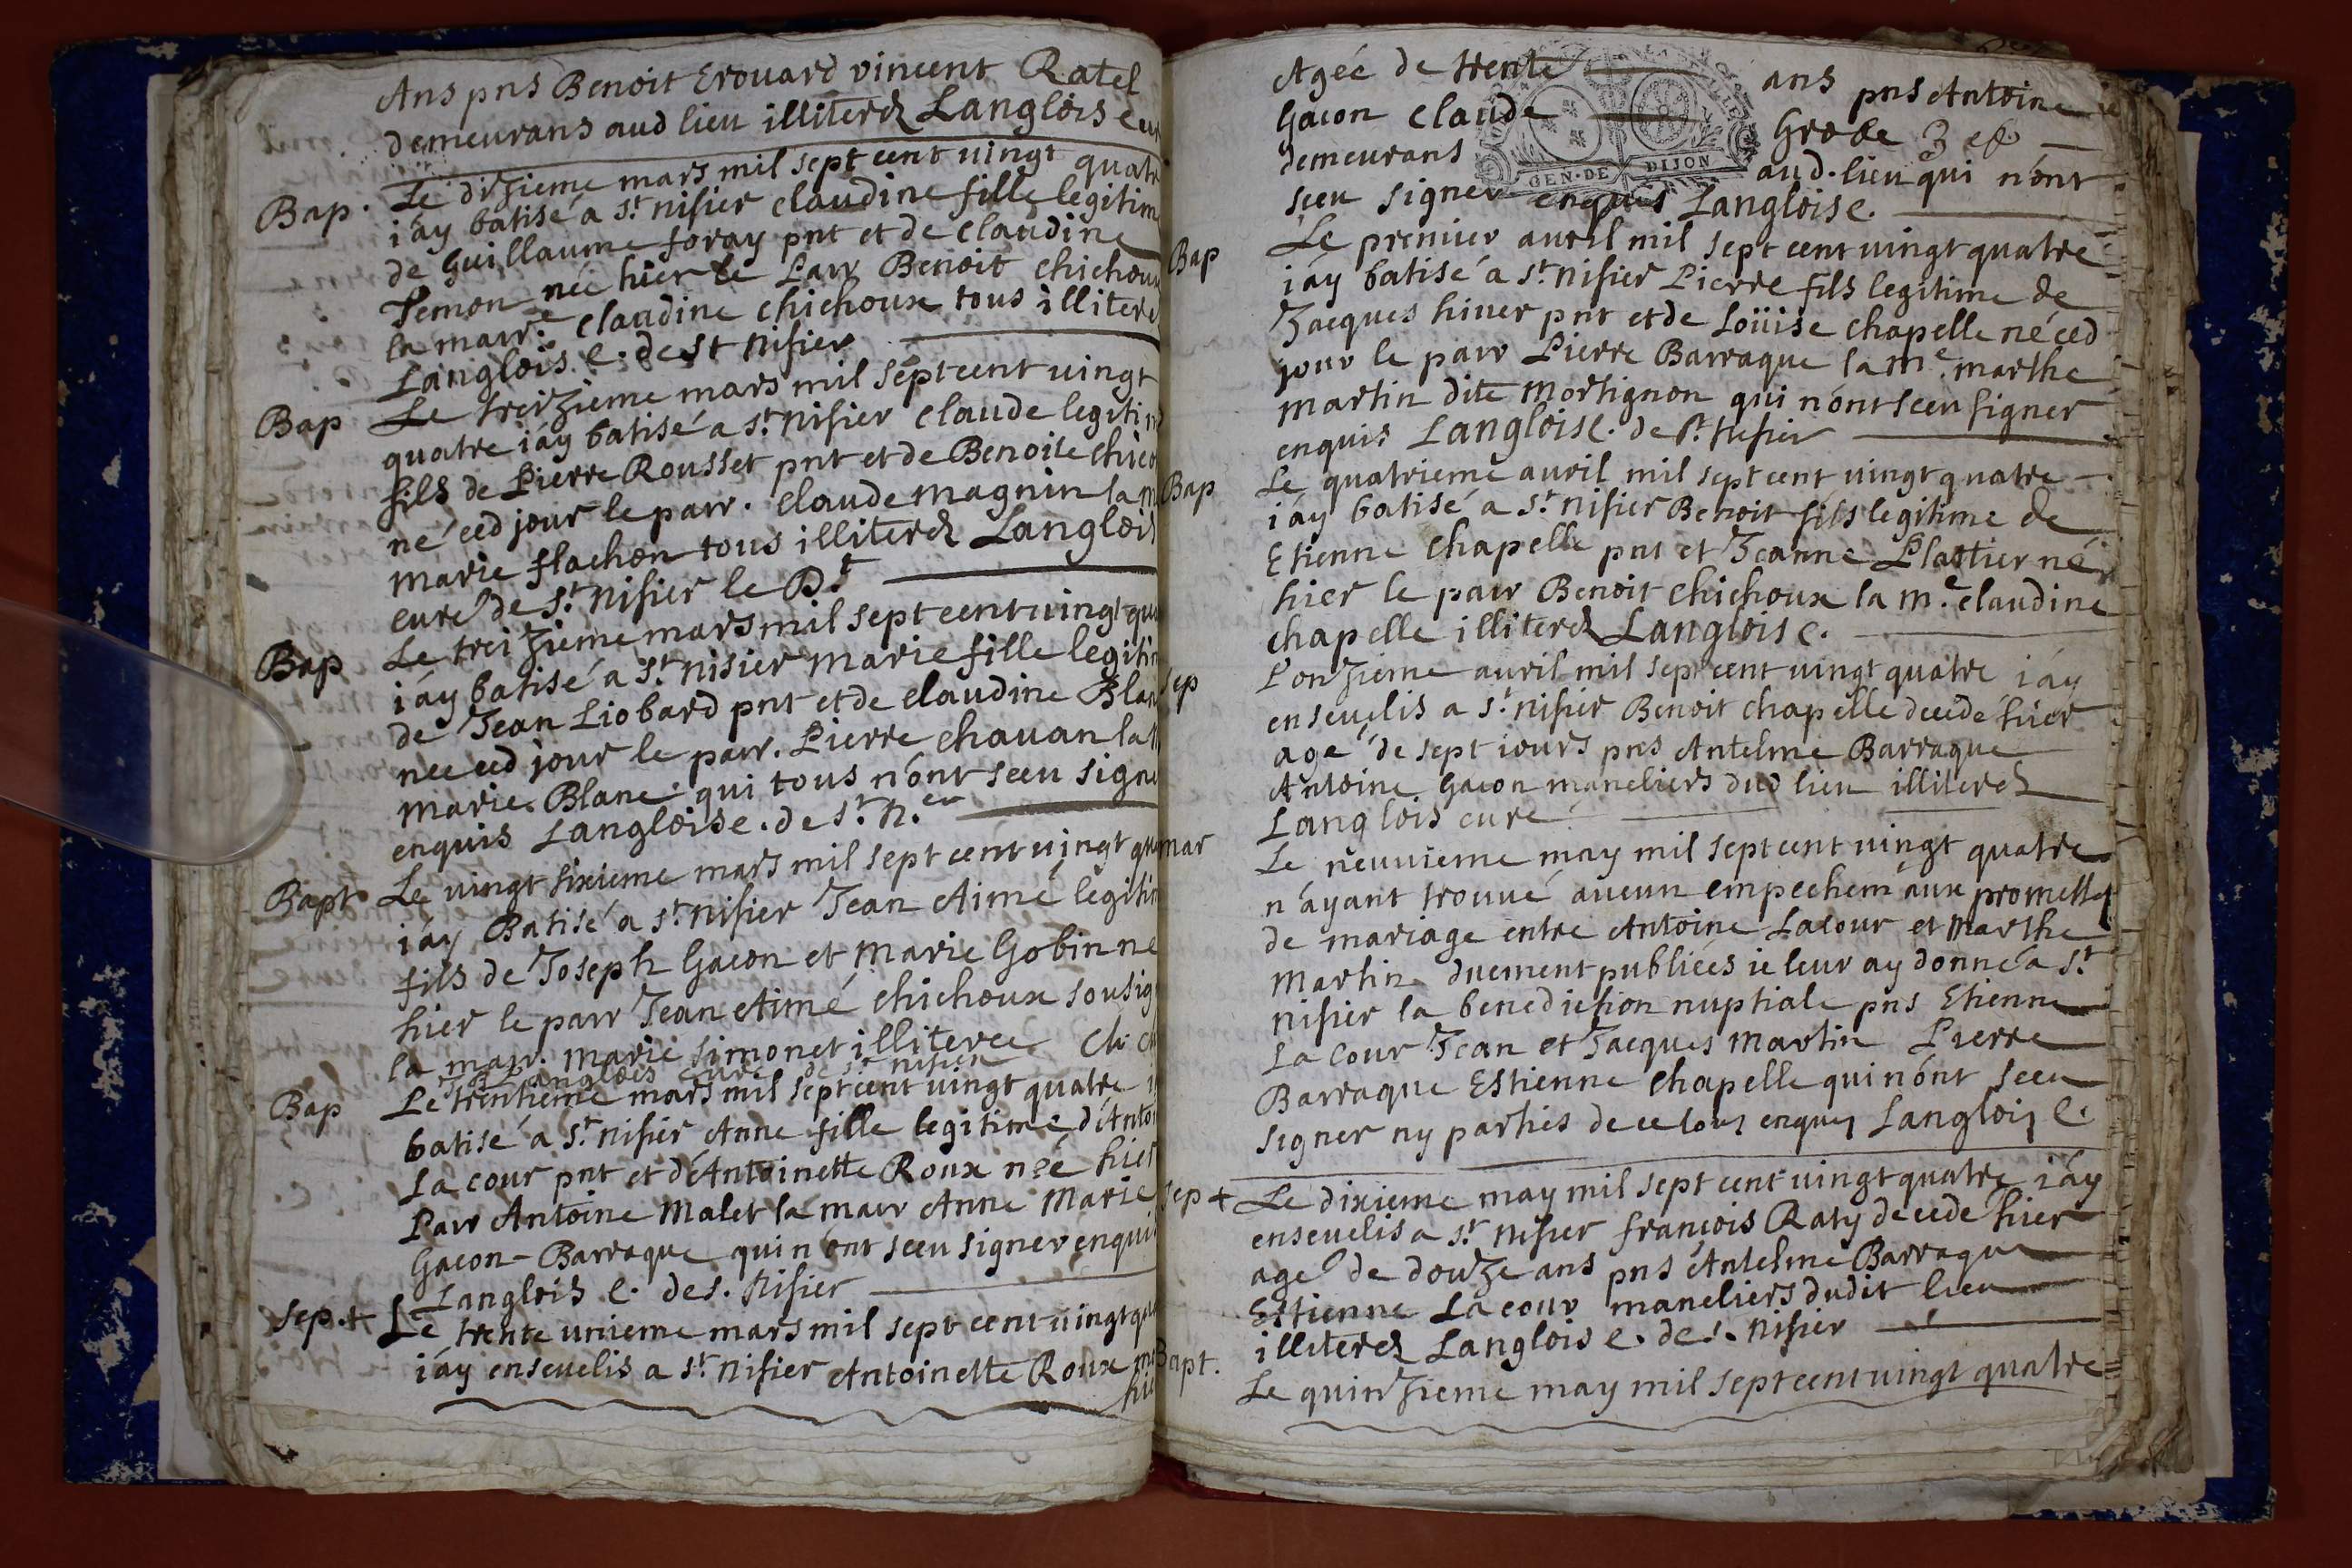 Ans pns Benoit Erouard vincent Ratel
demeurans aud lieu illiterez Langlois cur
Bap. Le dizieme mars mil sept cent vingt quatr
i'áy batisé a St. nisier claudine fille legitim
de Guillaume foray pnt et de claudine
Temon née hier le Parr Benoit chichoux
la marr.e claudine chichoux tous illitere
Langlois c. de St nisier
Bap Le treizieme mars mil sept cent vingt
quatre i'áy batisé a St. nisier claude legitim
fils de Pierre Rousset pnt et de Benoite chico
né ced jour le parr. claude magnin la m
marie flachon tous illiterez Langlois
curé de St. nisier le D.t
Bap Le treizieme mars mil sept cent vingt qua
i'áy batisé a St. nisier marie fille legitim
de Jean Liobard pnt et de claudine Blan
nee ced jour le parr. Pierre chavan la m
marie Blanc qui tous n'ont sceu signe
enquis Langlois c. de St. n.er
Bapt Le vingt sixieme mars mil sept cent vingt qua
i'áy Batisé a St. nisier Jean Aimé legitim
fils de Joseph Gacon et Marie Gobin né
hier le parr Jean Aimé chichoux sousig
la marr. marie simonet illiteree Ch ch
Langlois curé de St nisier
Bap Le trentieme mars mil sept cent vingt quatre i
batisé a St. nisier Anne fille legitime d'Anto
La cour pnt et d'Antoinette Roux née hier
Parr Antoine Malet la marr Anne Marie
Gacon-Barraque qui n'ont sceu signer enquis
Langlois c. de s. Nisier
Sep. + Le trente unieme mars mil sept cent vingt qua
i'áy ensevelis a St. nisier Antoinette Roux m
hie
Agée de trente ans pns Antoine
Gacon claude Grobe 3 ef
demeurans aud. lieu qui n'ont
sceu signer enquis Langlois c.
GEN. DE DIJON
Bap Le premier avril mil sept cent vingt quatre
i'áy batisé a St. nisier Pierre fils legitime de
Jacques hiver pnt et de Loüise chapelle né ced
jour le parr Pierre Barraque la m.e marthe
martin dite mortignon qui n'ont sceu signer
enquis Langlois c. de St. Nisier
Bap Le quatrieme avril mil sept cent vingt quatre
i'áy batisé a St. nisier Benoit fils legitime de
Etienne chapelle pnt et Jeanne Plattier né
hier le parr Benoit chichoux la m.e claudine
chapelle illiterez Langlois c.
Sep L'onzieme avril mil sept cent vingt quatre i'áy
ensevelis a St. nisier Benoit chapelle decedé hier
agé de sept iours pns Antelme Barraque
Antoine Gacon maneliers dud lieu illiterez
Langlois curé
mar Le neuvieme may mil sept cent vingt quatre
n'áyant trouvé aucun empechem aux promesses
de mariage entre Antoine Lacour et Marthe
Martin duement publiées ie leur ay donné a St.
nisier la benediction nuptiale pns Etienne
La cour Jean et Jacques Martin Pierre
Barraque Estienne chapelle qui n'ont sceu
signer ny parties de ce tous enquis Langlois C.
Sep + Le dixieme may mil sept cent vingt quatre i'áy
ensevelis a St. nisier francois Raty decedé hier
agé de douze ans pns Antelme Barraque
Estienne La cour maneliers dudit lieu
illiterez Langlois c. de s. Nisier
Bapt. Le quinzieme may mil sept cent vingt quatre